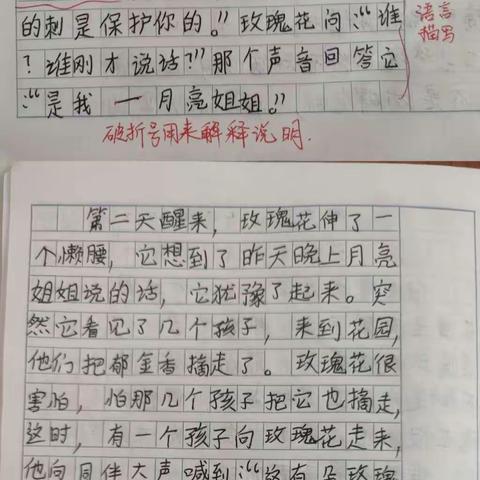 的刺是保护你的。”玫瑰花问:“谁
语言
描写
?谁刚才说话?”那个声音回答它
:“是我——月亮姐姐。”
破折号用来解释说明.
第二天醒来,玫瑰花伸了一
个懒腰,它想到了昨天晚上月亮
姐姐说的话,它犹豫了起来。突
然它看见了几个孩子,来到花园,
他们把郁金香摘走了。玫瑰花很
害怕,怕那几个孩子把它也摘走,
这时,有一个孩子向玫瑰花走来,
他向同伴大声喊到:“这有朵玫瑰